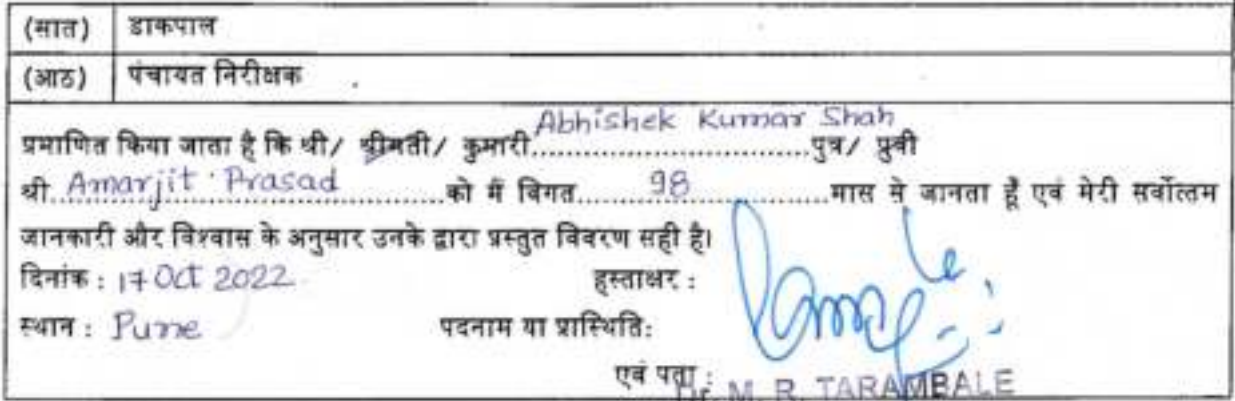 (सात) डाकपाल
(आठ) पंचायत निरीक्षक
प्रमाणित किया जाता है कि श्री/ श्रीमती/ कुमारी..............Abhishek Kumar Shah..............पुत्र/ पुत्री
श्री..Amarjit Prasad..............को मैं विगत..........98..........मास से जानता हूँ एवं मेरी सर्वोत्तम
जानकारी और विश्वास के अनुसार उनके द्वारा प्रस्तुत विवरण सही है।
दिनांक : 17 Oct 2022 हस्ताक्षर :
स्थान : Pune पदनाम या प्रास्थिति:
एवं पता : Dr. M. R. TARAMBALE